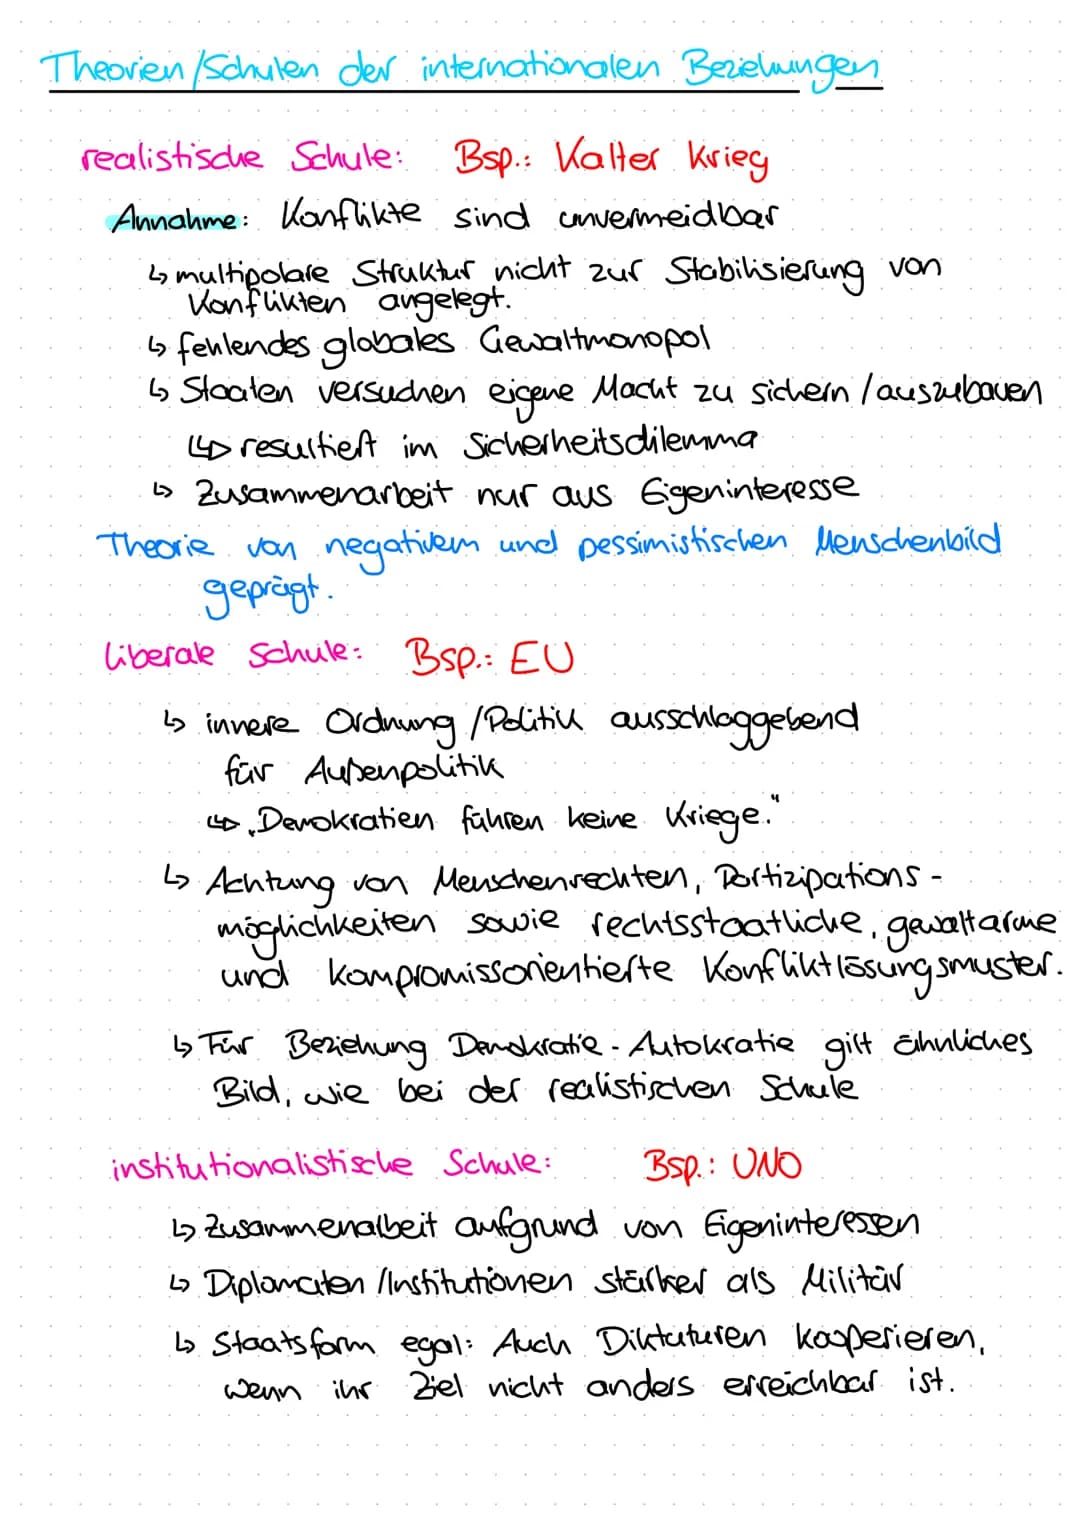 Theorien/Schulen der internationalen Beziehungen
realistische Schule: Bsp.: Kalter Krieg
Annahme: Konflikte sind unvermeidbar
↳ multipolare Struktur nicht zur Stabilisierung von
Konflikten angelegt.
↳ fehlendes globales Gewaltmonopol
↳ Staaten versuchen eigene Macht zu sichern/auszubauen
↳ resultiert im Sicherheitsdilemma
↳ Zusammenarbeit nur aus Eigeninteresse
Theorie von negativem und pessimistischen Menschenbild
geprägt.
liberale Schule: Bsp.: EU
↳ innere Ordnung/Politik ausschlaggebend
für Außenpolitik
↳ „Demokratien führen keine Kriege."
↳ Achtung von Menschenrechten, Partizipations-
möglichkeiten sowie rechtsstaatliche, gewaltarme
und kompromissorientierte Konfliktlösungsmuster.
↳ Für Beziehung Demokratie - Autokratie gilt ähnliches
Bild, wie bei der realistischen Schule
institutionalistische Schule: Bsp.: UNO
↳ Zusammenarbeit aufgrund von Eigeninteressen
↳ Diplomaten/Institutionen stärker als Militär
↳ Staatsform egal: Auch Diktaturen kooperieren,
wenn ihr Ziel nicht anders erreichbar ist.